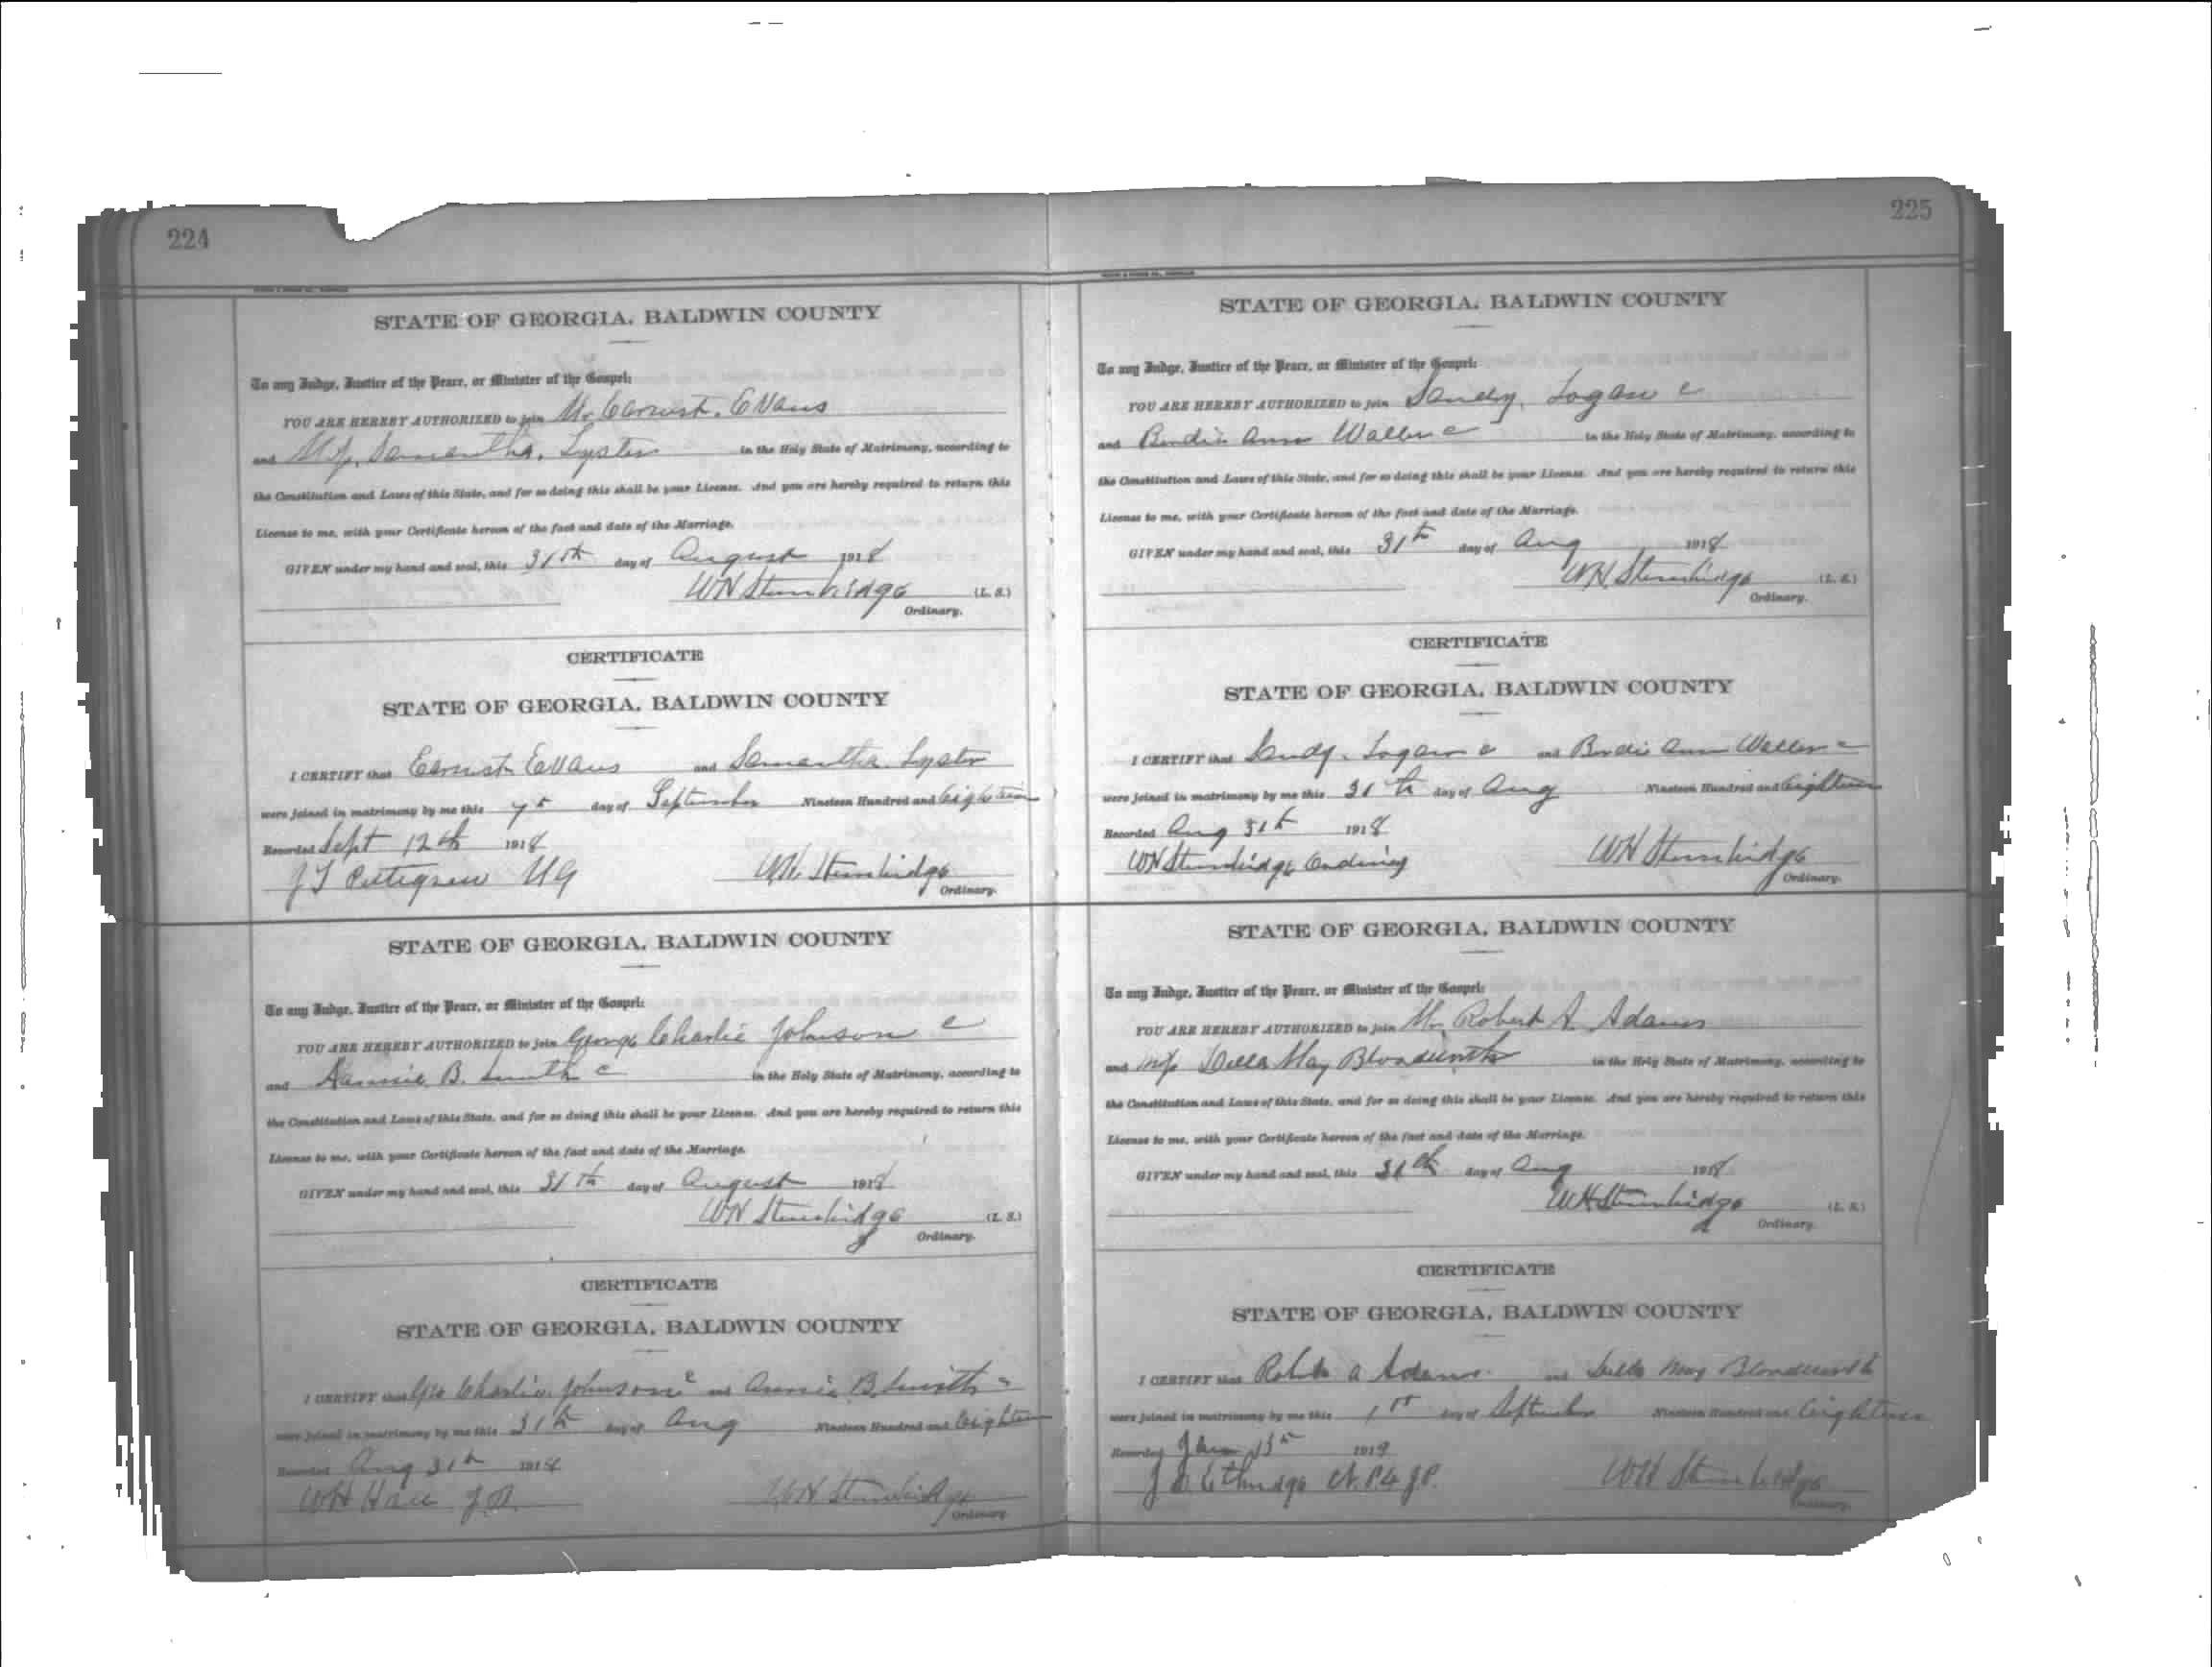 224
STATE OF GEORGIA, BALDWIN COUNTY
To any Judge, Justice of the Peace, or Minister of the Gospel:
YOU ARE HEREBY AUTHORIZED to join Mr. Earnest. Evans
and Samantha. Lyster in the Holy State of Matrimony, according to
the Constitution and Laws of this State, and for so doing this shall be your License. And you are hereby required to return this
License to me, with your Certificate hereon of the fact and date of the Marriage.
GIVEN under my hand and seal, this 31th day of August 1918
WH Stembridge (L. S.)
Ordinary.
CERTIFICATE
STATE OF GEORGIA, BALDWIN COUNTY
I CERTIFY that Earnest Evans and Samantha Lyster
were joined in matrimony by me this 7th day of September Nineteen Hundred and Eighteen
Recorded Sept 12th 1918
J T Pettigrew MG WH Stembridge
Ordinary.
STATE OF GEORGIA, BALDWIN COUNTY
To any Judge, Justice of the Peace, or Minister of the Gospel:
YOU ARE HEREBY AUTHORIZED to join George Charlie Johnson c
and B. Smith c in the Holy State of Matrimony, according to
the Constitution and Laws of this State, and for so doing this shall be your License. And you are hereby required to return this
License to me, with your Certificate hereon of the fact and date of the Marriage.
GIVEN under my hand and seal, this 31th day of August 1918
WH Stembridge (L. S.)
Ordinary.
CERTIFICATE
STATE OF GEORGIA, BALDWIN COUNTY
I CERTIFY that Geo Charlie Johnson c and Annie B. Smith c
were joined in matrimony by me this 31th day of Aug Nineteen Hundred and Eighteen
Recorded Aug 31th 1918
WH Hall J.P. WH Stembridge
Ordinary.
225
STATE OF GEORGIA, BALDWIN COUNTY
To any Judge, Justice of the Peace, or Minister of the Gospel:
YOU ARE HEREBY AUTHORIZED to join Sandy, Logan c
and Birdie Ann Waller c in the Holy State of Matrimony, according to
the Constitution and Laws of this State, and for so doing this shall be your License. And you are hereby required to return this
License to me, with your Certificate hereon of the fact and date of the Marriage.
GIVEN under my hand and seal, this 31th day of Aug 1918
WH Stembridge (L. S.)
Ordinary.
CERTIFICATE
STATE OF GEORGIA, BALDWIN COUNTY
I CERTIFY that Sandy. Logan c and Birdie Ann Waller c
were joined in matrimony by me this 31th day of Aug Nineteen Hundred and Eighteen
Recorded Aug 31th 1918
WH Stembridge Ordinary WH Stembridge
Ordinary.
STATE OF GEORGIA, BALDWIN COUNTY
To any Judge, Justice of the Peace, or Minister of the Gospel:
YOU ARE HEREBY AUTHORIZED to join Mr. Robert A. Adams
and May Bloodworth in the Holy State of Matrimony, according to
the Constitution and Laws of this State, and for so doing this shall be your License. And you are hereby required to return this
License to me, with your Certificate hereon of the fact and date of the Marriage.
GIVEN under my hand and seal, this 31th day of Aug 1918
WH Stembridge (L. S.)
Ordinary.
CERTIFICATE
STATE OF GEORGIA, BALDWIN COUNTY
I CERTIFY that Robt A Adams. and May Bloodworth
were joined in matrimony by me this 1st day of September Nineteen Hundred and Eighteen
Recorded Jan 1919
Ethridge N.P. & J.P. WH Stembridge
Ordinary.